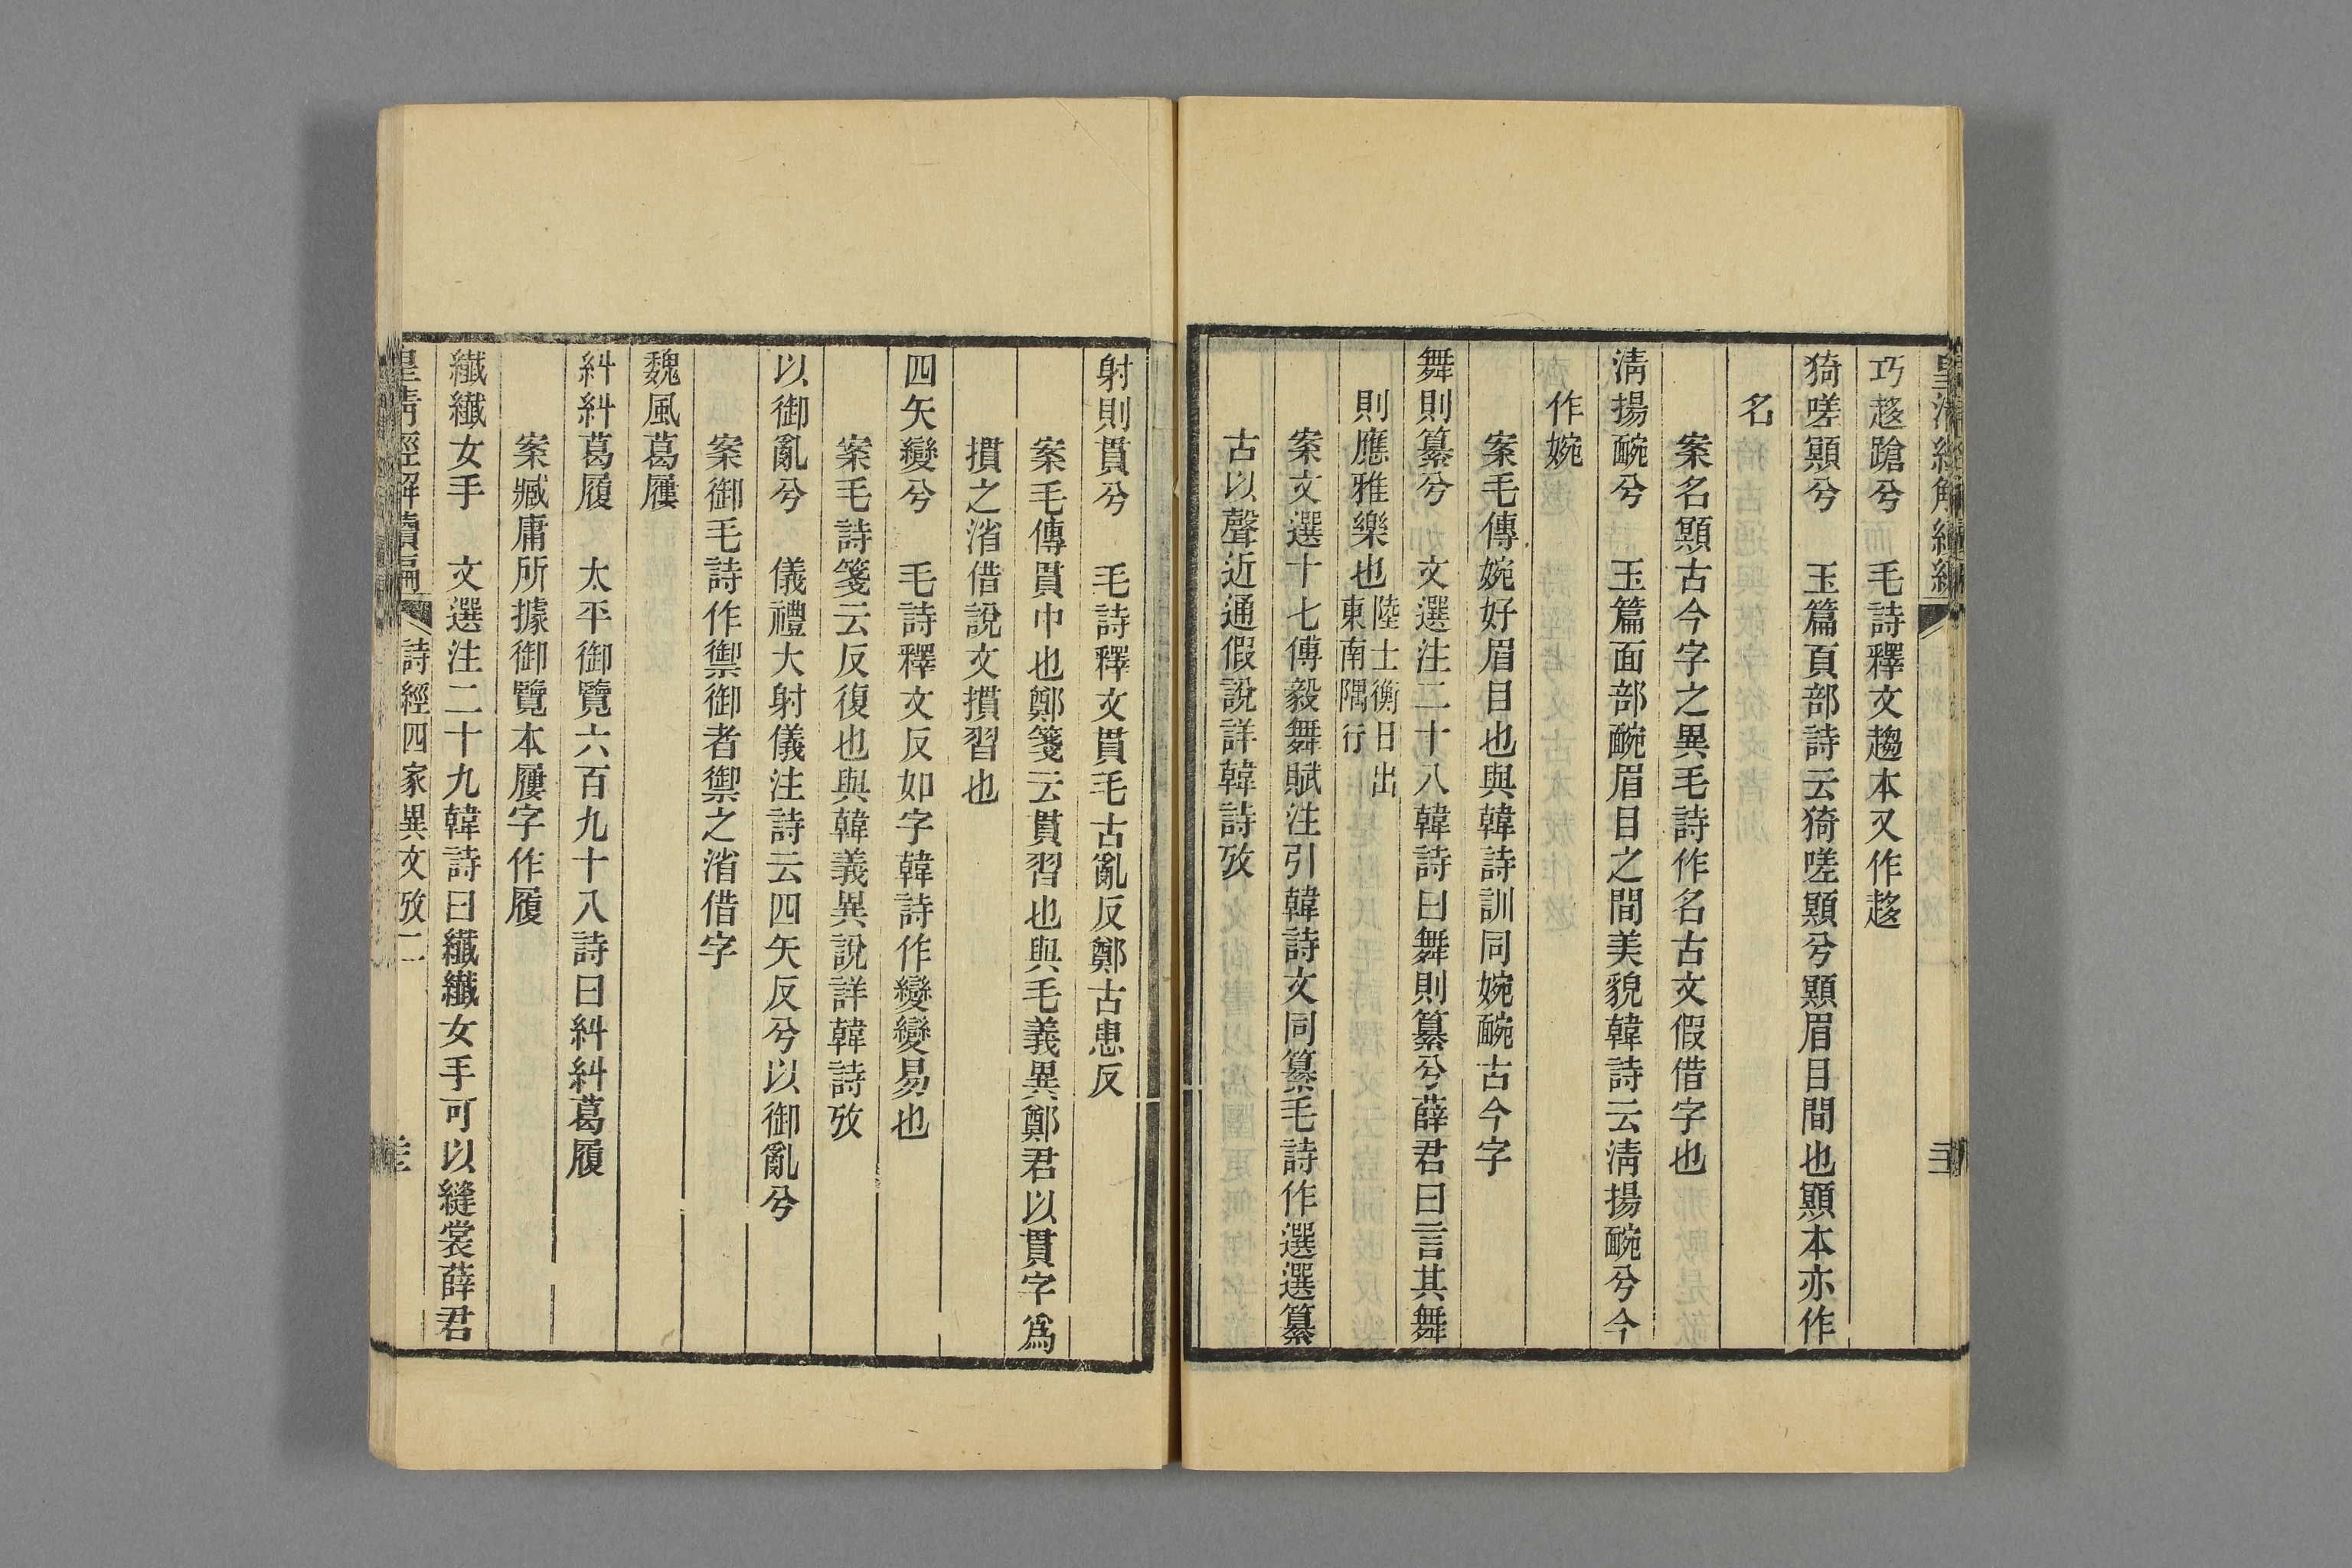 巧趍蹌兮　毛詩釋文趨本又作趍
猗嗟顯兮　玉篇頁部詩云猗嗟顯兮顯眉目間也顯本亦作
名
案名顯古今字之異毛詩作名古文假借字也
清揚䩊兮　玉篇面部䩊眉目之間美貌韓詩云清揚䩊兮今
作婉
案毛傳婉好眉目也與韓詩訓同婉䩊古今字
舞則纂兮　文選注二十八韓詩曰舞則纂兮薛君曰言其舞
則應雅樂也陸士衡日出東南隅行
案文選十七傅毅舞賦注引韓詩文同纂毛詩作選選纂
古以聲近通假說詳韓詩攷
射則貫兮　毛詩釋文貫毛古亂反鄭古患反
案毛傳貫中也鄭箋云貫習也與毛義異鄭君以貫字為
摜之渻借說文摜習也
四矢變兮　毛詩釋文反如字韓詩作變變易也
案毛詩箋云反復也與韓義異說詳韓詩攷
以御亂兮　儀禮大射儀注詩云四矢反兮以御亂兮
案御毛詩作禦御者禦之渻借字
魏風葛屨
糾糾葛履　太平御覽六百九十八詩曰糾糾葛履
案臧庸所據御覽本屨字作履
纖纖女手　文選注二十九韓詩曰纖纖女手可以縫裳薛君
皇清經解續編　詩經四家異文攷二